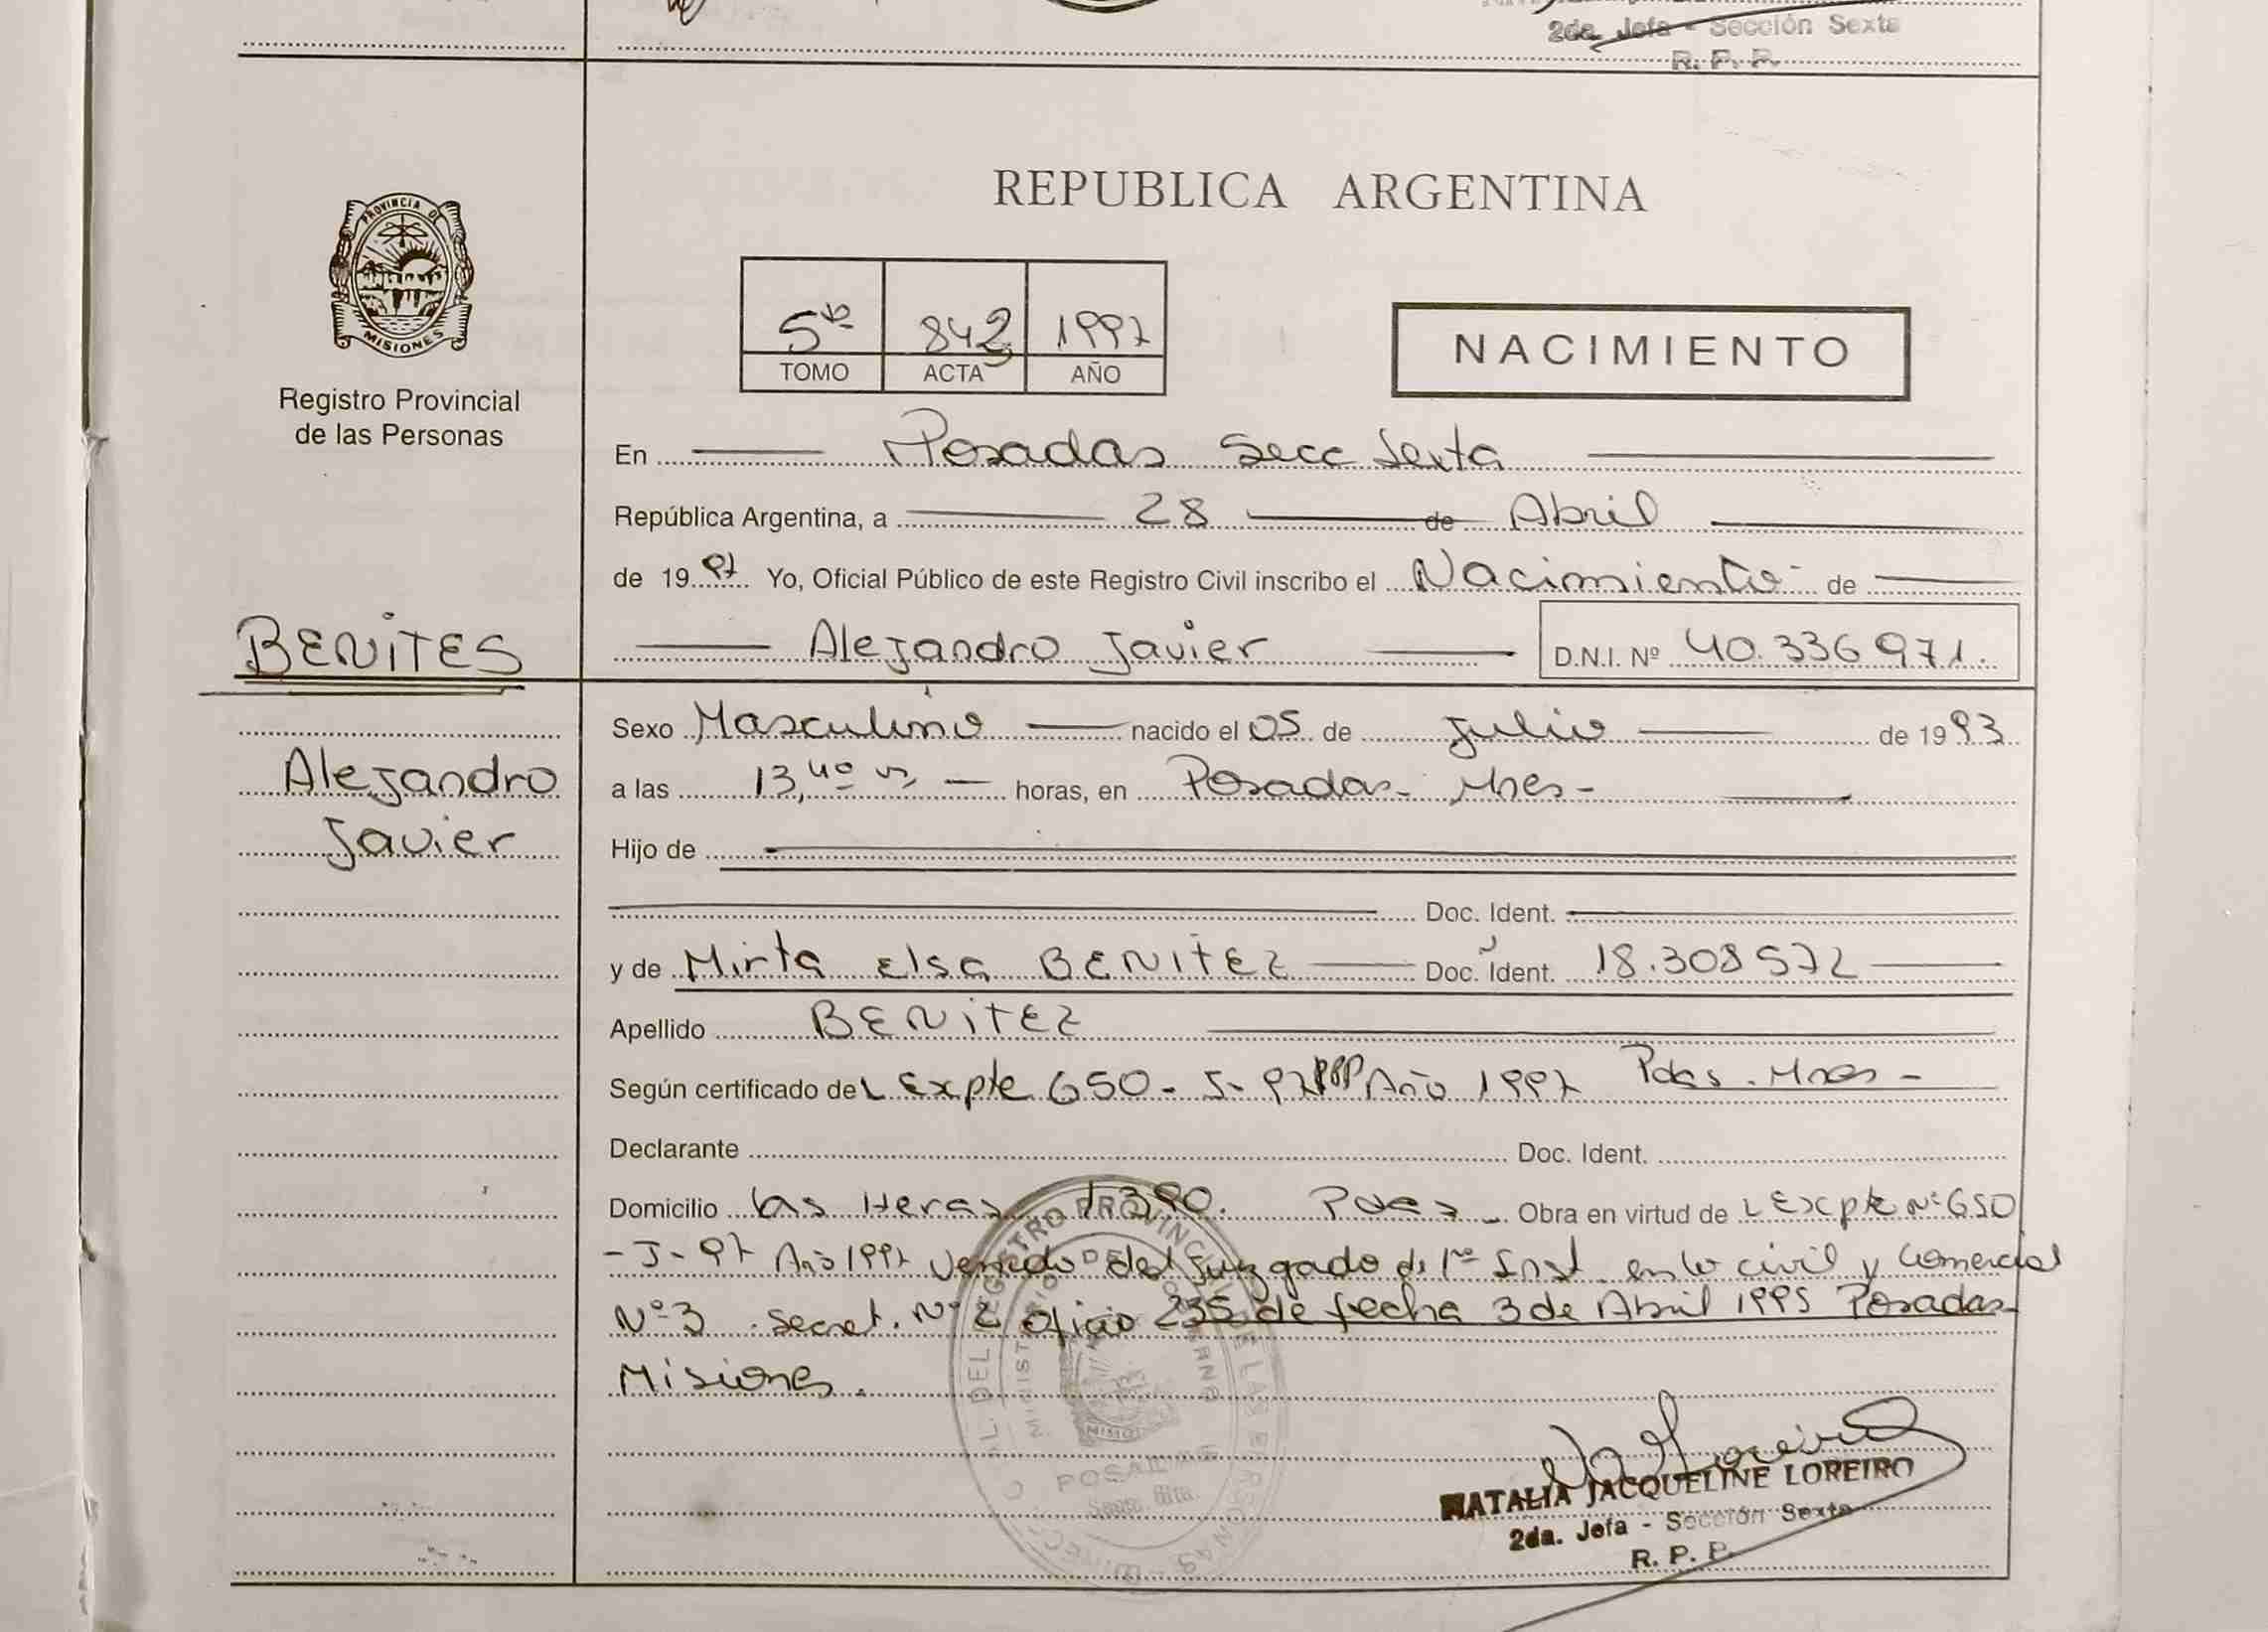 2da. Jefa - Sección Sexta
R. P. P.
PROVINCIA DE
MISIONES
Registro Provincial
de las Personas
REPUBLICA ARGENTINA
5to 842 1997
TOMO ACTA AÑO
NACIMIENTO
En Posadas Secc Sexta
República Argentina, a 28 de Abril
de 1997 Yo, Oficial Público de este Registro Civil inscribo el Nacimiento de
BENITES
Alejandro Javier D.N.I. Nº 40.336971.
Sexo Masculino nacido el 05 de Julio de 1993
Alejandro
a las 13,40 hs horas, en Posadas- Mnes-
Javier
Hijo de
Doc. Ident.
y de Mirta Elsa BENITEZ Doc. Ident. 18.308572
Apellido BENITEZ
Según certificado del Expte 650- J- 97 RPP Año 1997 Pdas. Mnes-
Declarante Doc. Ident.
Domicilio las Heras 1390. Pdas - Obra en virtud de L Expte Nº 650
- J- 97 Año 1997 venido del Juzgado de 1ra Inst en lo civil y Comercial
Nº 3 Secret. Nº 2 oficio 235 de fecha 3 de Abril 1995 Posadas
Misiones.
NATALIA JACQUELINE LOREIRO
2da. Jefa - Sección Sexta
R. P. P.